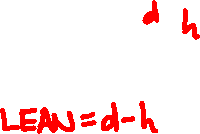 d h
LEAN=d-h